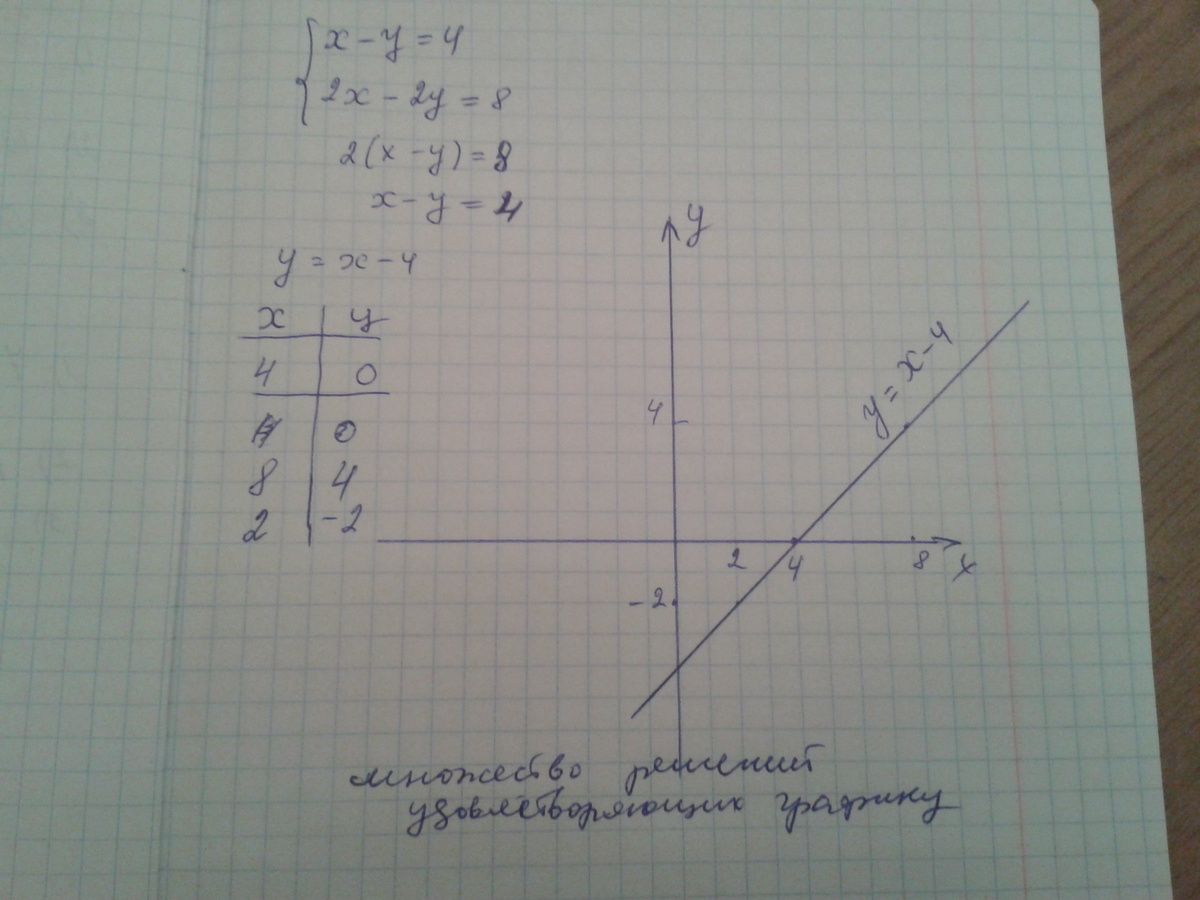 x - y = 4
2x - 2y = 8
2(x - y) = 8
x - y = 4
y = x - 4
x y
4 0
4 0
8 4
2 -2
y
y = x - 4
4
2 4 8 x
-2
множество решений
удовлетворяющих графику